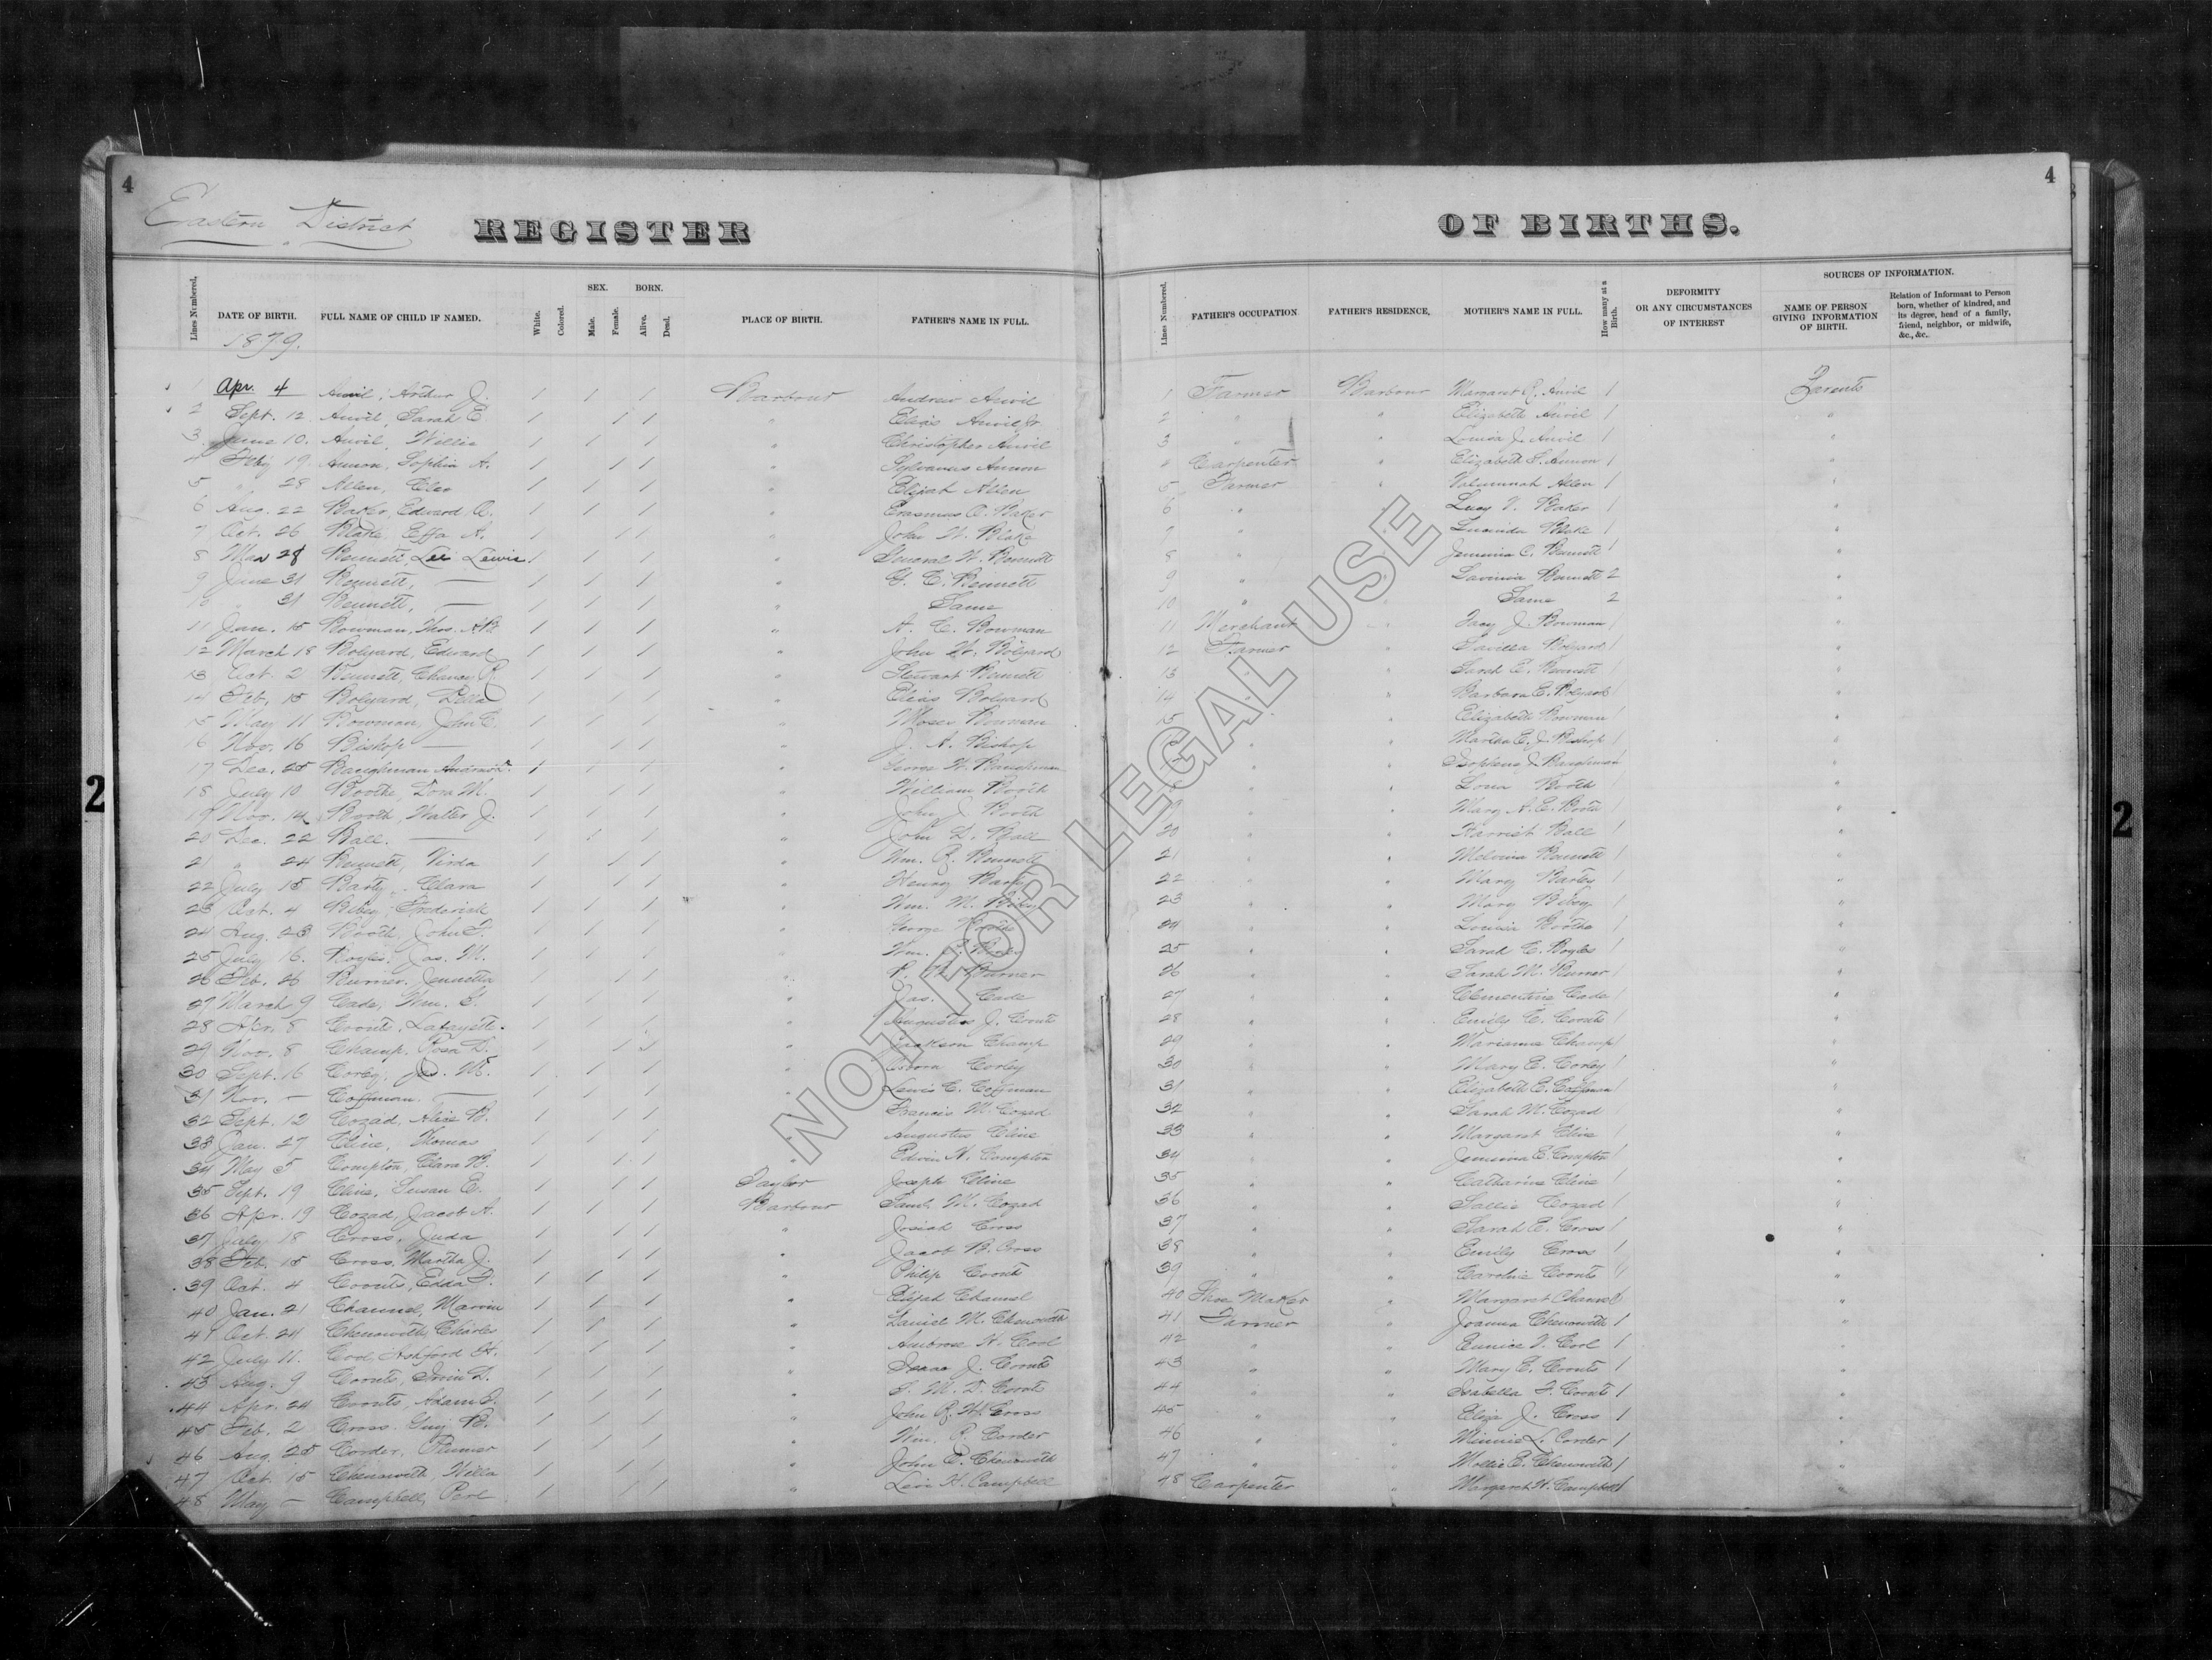 4
Eastern District
REGISTER
Lines Numbered.
DATE OF BIRTH.
FULL NAME OF CHILD IF NAMED.
White.
Colored.
SEX.
Male.
Female.
BORN.
Alive.
Dead.
PLACE OF BIRTH.
FATHER'S NAME IN FULL.
1879.
1 Apr. 4 Anvil, Arthur J. / / / Barbour Andrew Anvil
2 Sept. 12 Anvil, Sarah E / / / " Elias Anvil Jr.
3 June 10. Anvil, Willie / / / " Christopher Anvil
4 Feby 19. Annon, Sophia A. / / / " Sylvanus Annon
5 " 28 Allen, Cleo / / / " Elijah Allen
6 Aug. 22 Baker, Edward C. / / / " Erasmus C. Baker
7 Oct. 26 Blake, Effa A. / / / " John W. Blake
8 Mar 28 Bennett, Lee Lewis / / / " General W. Bennett
9 June 31 Bennett, — / / / " G. E. Bennett
10 " 31 Bennett, — / / / " Same
11 Jan. 15 Bowman, Thos. A.B. / / / " A. C. Bowman
12 March 18 Bolyard, Edward / / / " John W. Bolyard
13 Oct. 2 Bennett, Chancy R. / / / " Stewart Bennett
14 Feb. 15 Bolyard, Della / / / " Elias Bolyard
15 May 11 Bowman, John C. / / / " Moses Bowman
16 Nov. 16 Bishop — / / / " J. A. Bishop
17 Dec. 25 Baughman / / / " George W. Baughman
18 July 10 Boothe, Dora M. / / / " William Booth
19 Nov. 14 Booth, Walter J. / / / " John J. Booth
20 Dec. 22 Ball. — / / / " John D. Ball
21 " 24 Bennett, Virda / / / " Wm. R. Bennett
22 July 15 Barty, Clara / / / " Henry Barty
23 Oct. 4 Bibey, Frederick / / / " Wm. M. Bibey
24 Aug. 23 Booth, John F. / / / " George Boothe
25 July 16. Boyles, Jas. M. / / / " Wm.
26 Feb. 26 Burner, Jennetta / / / " Burner
27 March 9 Cade, Wm. E. / / / " Jas. Cade
28 Apr. 8 Coonts, Lafayette. / / / " Augustus J. Coonts
29 Nov. 8 Champ, Rosa D. / / / " Jackson Champ
30 Sept. 16 Corley, M. / / / " Corley
31 Nov. — Coffman. — / / / " Lewis C. Coffman
32 Sept. 12 Cozad, Alice B. / / / " Francis M. Cozad
33 Jan. 27 Cline, Thomas / / / " Augustus Cline
34 May 5 Compton, Clara B. / / / " Edwin N. Compton
35 Sept. 19 Cline, Susan E. / / / Taylor Joseph Cline
36 Apr. 19 Cozad, Jacob A. / / / Barbour Saml. M. Cozad
37 July 18 Cross, Juda / / / " Josiah Cross
38 Feb. 15 Cross, Martha J. / / / " Jacob B. Cross
39 Oct. 4 Coonts, Edda F. / / / " Philip Coonts
40 Jan. 21 Channel, Marvin / / / " Elijah Channel
41 Oct. 24 Chenowith, Charles / / / " Daniel M. Chenowith
42 July 11. Cool, Ashford H. / / / " Ambrose W. Cool
43 Aug. 9 Coonts, Irvin D. / / / " Isaac J. Coonts
44 Apr. 24 Coonts, Adam / / / " S. M. D. Coonts
45 Feb. 2 Cross, Guy B. / / / " John R. W. Cross
46 Aug. 25 Corder, Plummer / / / " Wm. P. Corder
47 Oct. 15 Chenowith, Willa / / / " John E. Chenowith
48 May — Campbell, Perl / / / " Levi H. Campbell
2
4
OF BIRTHS.
Lines Numbered.
FATHER'S OCCUPATION
FATHER'S RESIDENCE,
MOTHER'S NAME IN FULL.
How many at a Birth.
DEFORMITY
OR ANY CIRCUMSTANCES
OF INTEREST
SOURCES OF INFORMATION.
NAME OF PERSON
GIVING INFORMATION
OF BIRTH.
Relation of Informant to Person
born, whether of kindred, and
its degree, head of a family,
friend, neighbor, or midwife,
&c., &c.
1 Farmer Barbour Margaret R. Anvil 1 Parents
2 " " Elizabeth Anvil 1 "
3 " " Louisa J. Anvil 1 "
4 Carpenter " Elizabeth S. Annon 1 "
5 Farmer " Volumnah Allen 1 "
6 " " Lucy V. Baker 1 "
7 " " Lucinda Blake 1 "
8 " " Jemima C. Bennett 1 "
9 " " Lavinia Bennett 2 "
10 " " Same 2 "
11 Merchant " Tacy J. Bowman 1 "
12 Farmer " Savilla Bolyard 1 "
13 " " Sarah C. Bennett 1 "
14 " " Barbara E. Bolyard 1 "
15 " " Elizabeth Bowman 1 "
16 " " Martha E. J. Bishop 1 "
17 " " J. Baughman 1 "
18 " " Booth 1 "
19 " " Mary A. E. Booth 1 "
20 " " Harriet Ball 1 "
21 " " Melvina Bennett 1 "
22 " " Mary Bartey 1 "
23 " " Mary Bibey 1 "
24 " " Louisa Boothe 1 "
25 " " Sarah C. Boyles 1 "
26 " " Sarah M. Burner 1 "
27 " " Clementine Cade 1 "
28 " " Emily C. Coonts 1 "
29 " " Marianna Champ 1 "
30 " " Mary E. Corley 1 "
31 " " Elizabeth E. Coffman 1 "
32 " " Sarah M. Cozad "
33 " " Margaret Cline 1 "
34 " " Jemima E. Compton 1 "
35 " " Catharine Cline 1 "
36 " " Sallie Cozad 1 "
37 " " Sarah E. Cross 1 "
38 " " Emily Cross 1 "
39 " " Caroline Coonts 1 "
40 Shoe Maker " Margaret Channel 1 "
41 Farmer " Joanna Chenowith 1 "
42 " " Eunice V. Cool 1 "
43 " " Mary C. Coonts 1 "
44 " " Isabella F. Coonts 1 "
45 " " Eliza J. Cross 1 "
46 " " Minnie L. Corder 1 "
47 " " Mollie E. Chenowith 1 "
48 Carpenter " Margaret H. Campbell 1 "
2
NOT FOR LEGAL USE